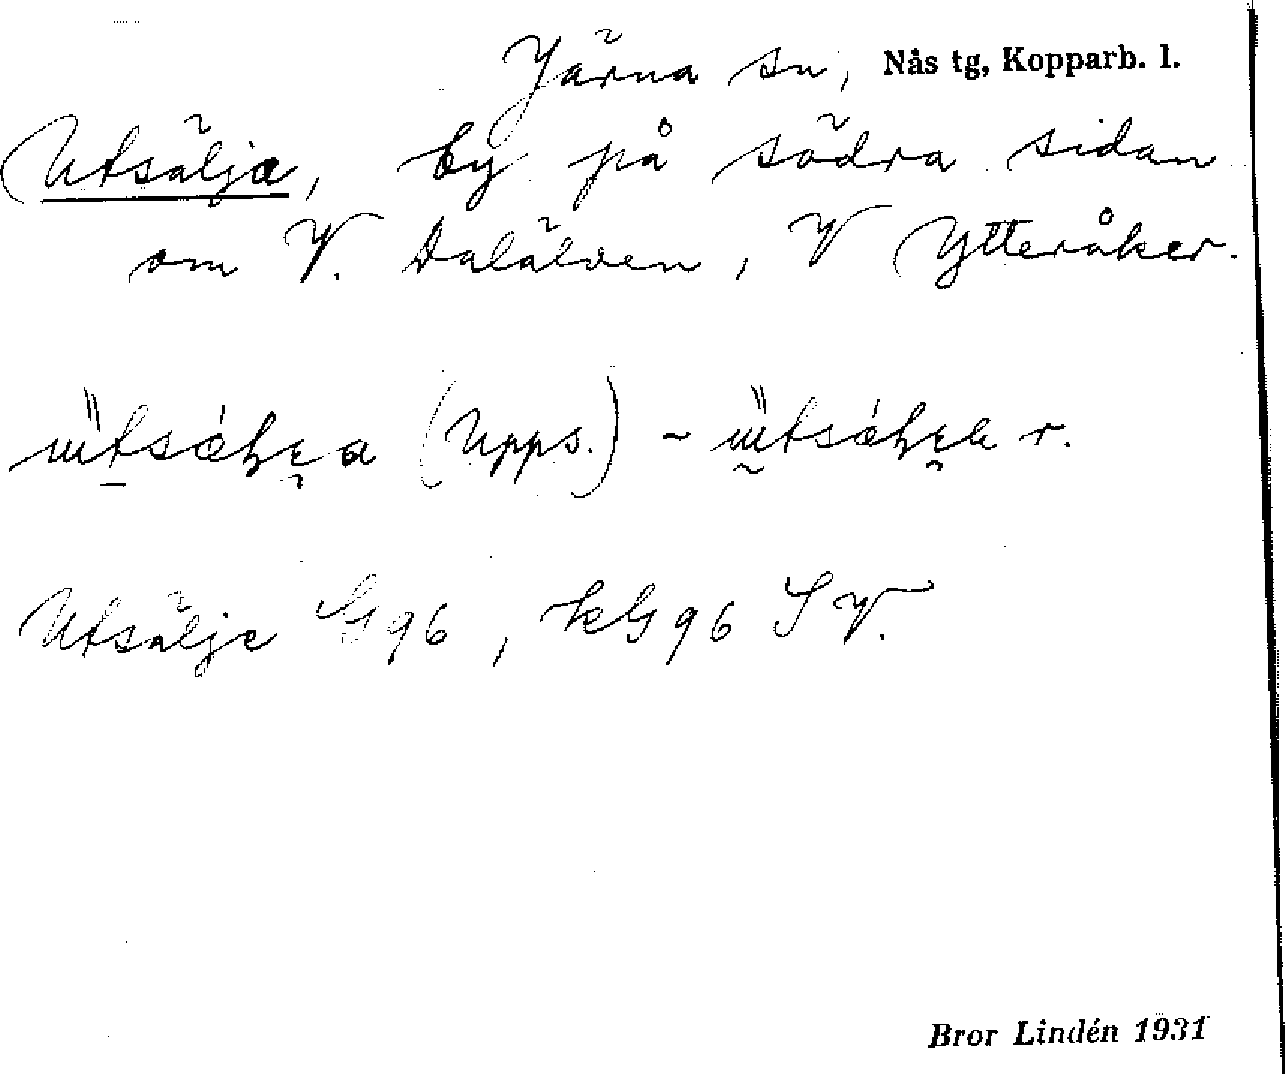 Järna sn, Nås tg, Kopparb. l.
Utsälja, by på södra sidan
om V. Dalälven, V Ytteråker.
(Upps.) ~ r.
Utsälje G96, kG96 S V.
Bror Lindén 1931